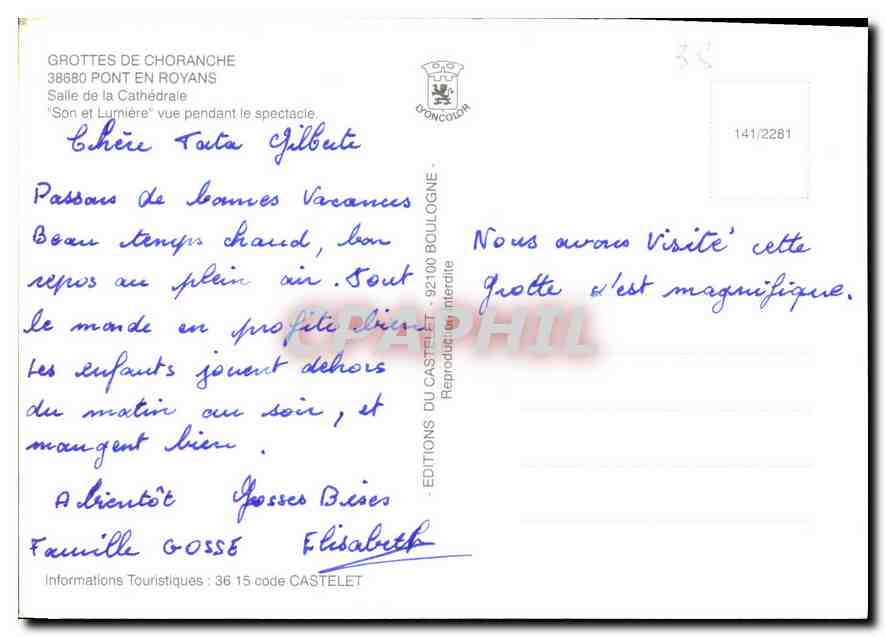 GROTTES DE CHORANCHE
38680 PONT EN ROYANS
Salle de la Cathédrale
"Son et Lumière" vue pendant le spectacle.
Chère Tata Gilberte
Passons de bonnes Vacances
Beau temps chaud, bon
repos au plein air. Tout
le monde en profite bien
Les enfants jouent dehors
du matin au soir, et
mangent bien.
A bientôt Grosses Bises
Famille GOSSE Elisabeth
Informations Touristiques : 36 15 code CASTELET
LYONCOLOR
- EDITIONS DU CASTELET - 92100 BOULOGNE -
Reproduction interdite
35
141/2281
Nous avons Visité cette
Grotte c'est magnifique.
CPAPHIL